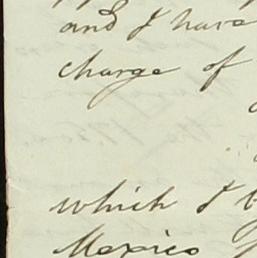 and I have
charge of
which I
Mexico